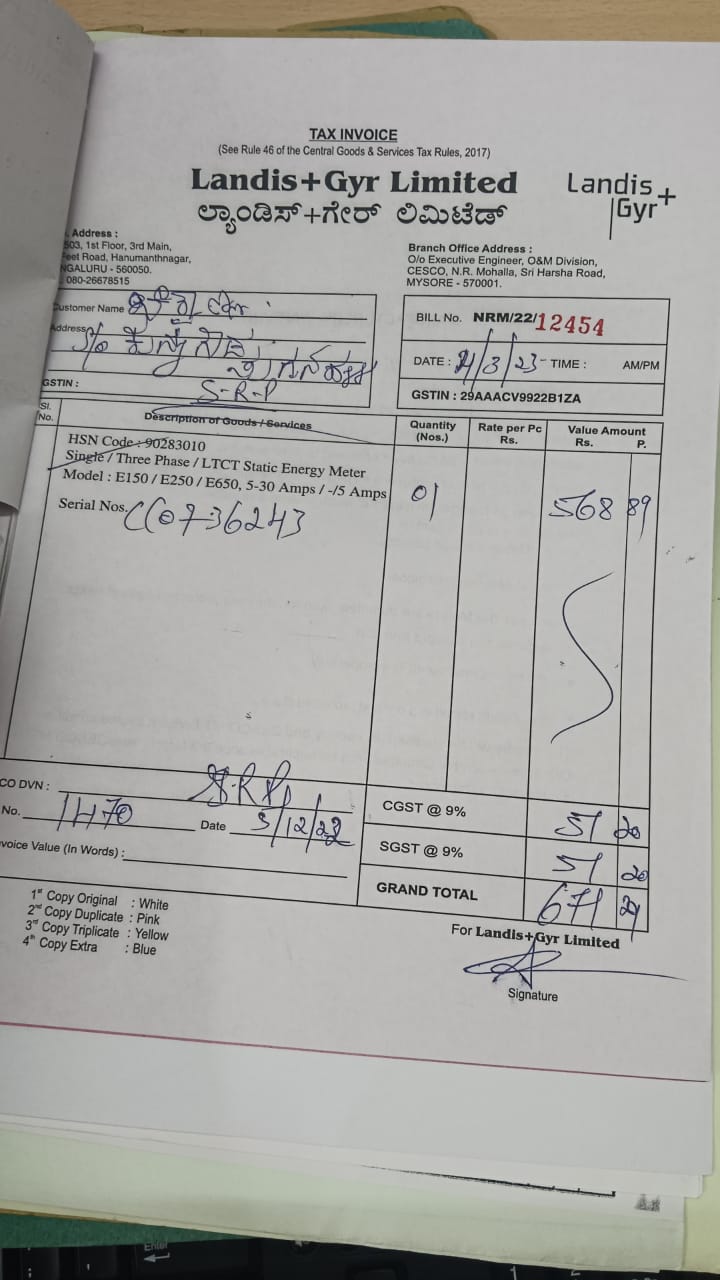 TAX INVOICE
(See Rule 46 of the Central Goods & Services Tax Rules, 2017)
Landis+Gyr Limited
ಲ್ಯಾಂಡಿಸ್+ಗೇರ್ ಲಿಮಿಟೆಡ್
Landis+
Gyr
Address :
503, 1st Floor, 3rd Main,
Feet Road, Hanumanthnagar,
NGALURU - 560050.
080-26678515
Branch Office Address :
O/o Executive Engineer, O&M Division,
CESCO, N.R. Mohalla, Sri Harsha Road,
MYSORE - 570001.
Customer Name
Address
S-R-P
GSTIN :
BILL No. NRM/22/12454
DATE : /3/23 TIME : AM/PM
GSTIN : 29AAACV9922B1ZA
Sl. No. Description of Goods / Services Quantity (Nos.) Rate per Pc Rs. Value Amount Rs. P.
HSN Code : 90283010
Single / Three Phase / LTCT Static Energy Meter
Model : E150 / E250 / E650, 5-30 Amps / -/5 Amps 01 568 89
Serial Nos. CC0736243
CO DVN : S.R.P
No. 1470 Date 5/12/22
voice Value (In Words) :
CGST @ 9% 51 20
SGST @ 9% 51 20
GRAND TOTAL 671 29
1st Copy Original : White
2nd Copy Duplicate : Pink
3rd Copy Triplicate : Yellow
4th Copy Extra : Blue
For Landis+Gyr Limited
Signature
Enter